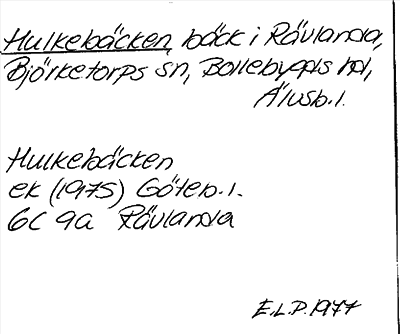 Hulkebäcken, bäck i Rävlanda,
Björketorps sn, Bollebygds hd,
Älvsb. l.
Hulkebäcken
ek (1975) Göteb. l.
6C 9a Rävlanda
E.L.P. 1977